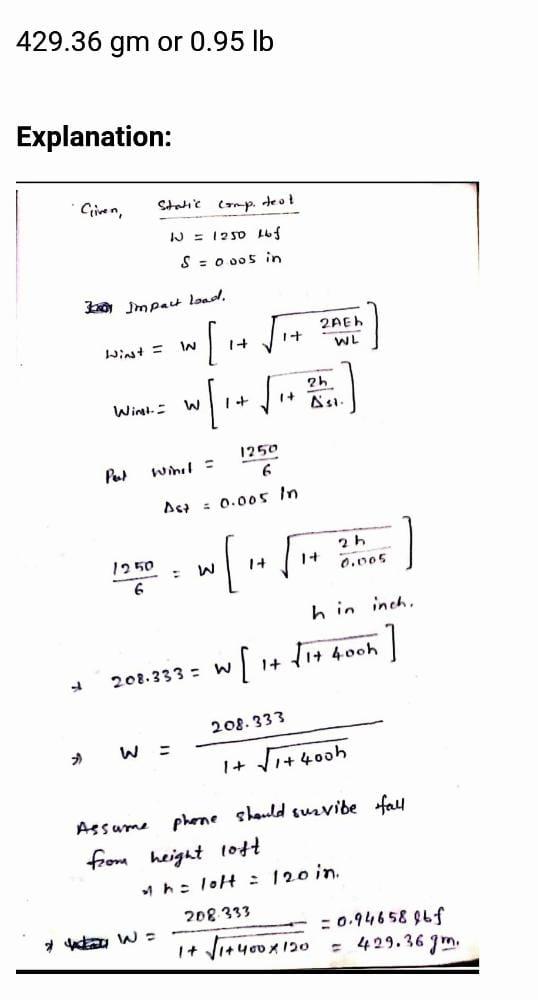 429.36 gm or 0.95 lb
Explanation:
Given, Static comp. test
W = 1250 lbf
δ = 0.005 in
Impact load.
Winst = W [ 1+ √(1+ 2AEh/WL) ]
Winst. = W [ 1+ √(1+ 2h/Δst.) ]
Put Winst = 1250/6
Δst = 0.005 In
1250/6 = W [ 1+ √(1+ 2h/0.005) ]
h in inch.
⇒ 208.333 = W [ 1+ √(1+ 400h) ]
⇒ W = 208.333/(1+ √(1+400h))
Assume phone should survibe fall
from height 10ft
⇒ h = 10ft = 120 in.
⇒ W = 208.333/(1+ √(1+400×120)) = 0.94658 lbf
= 429.36 gm.